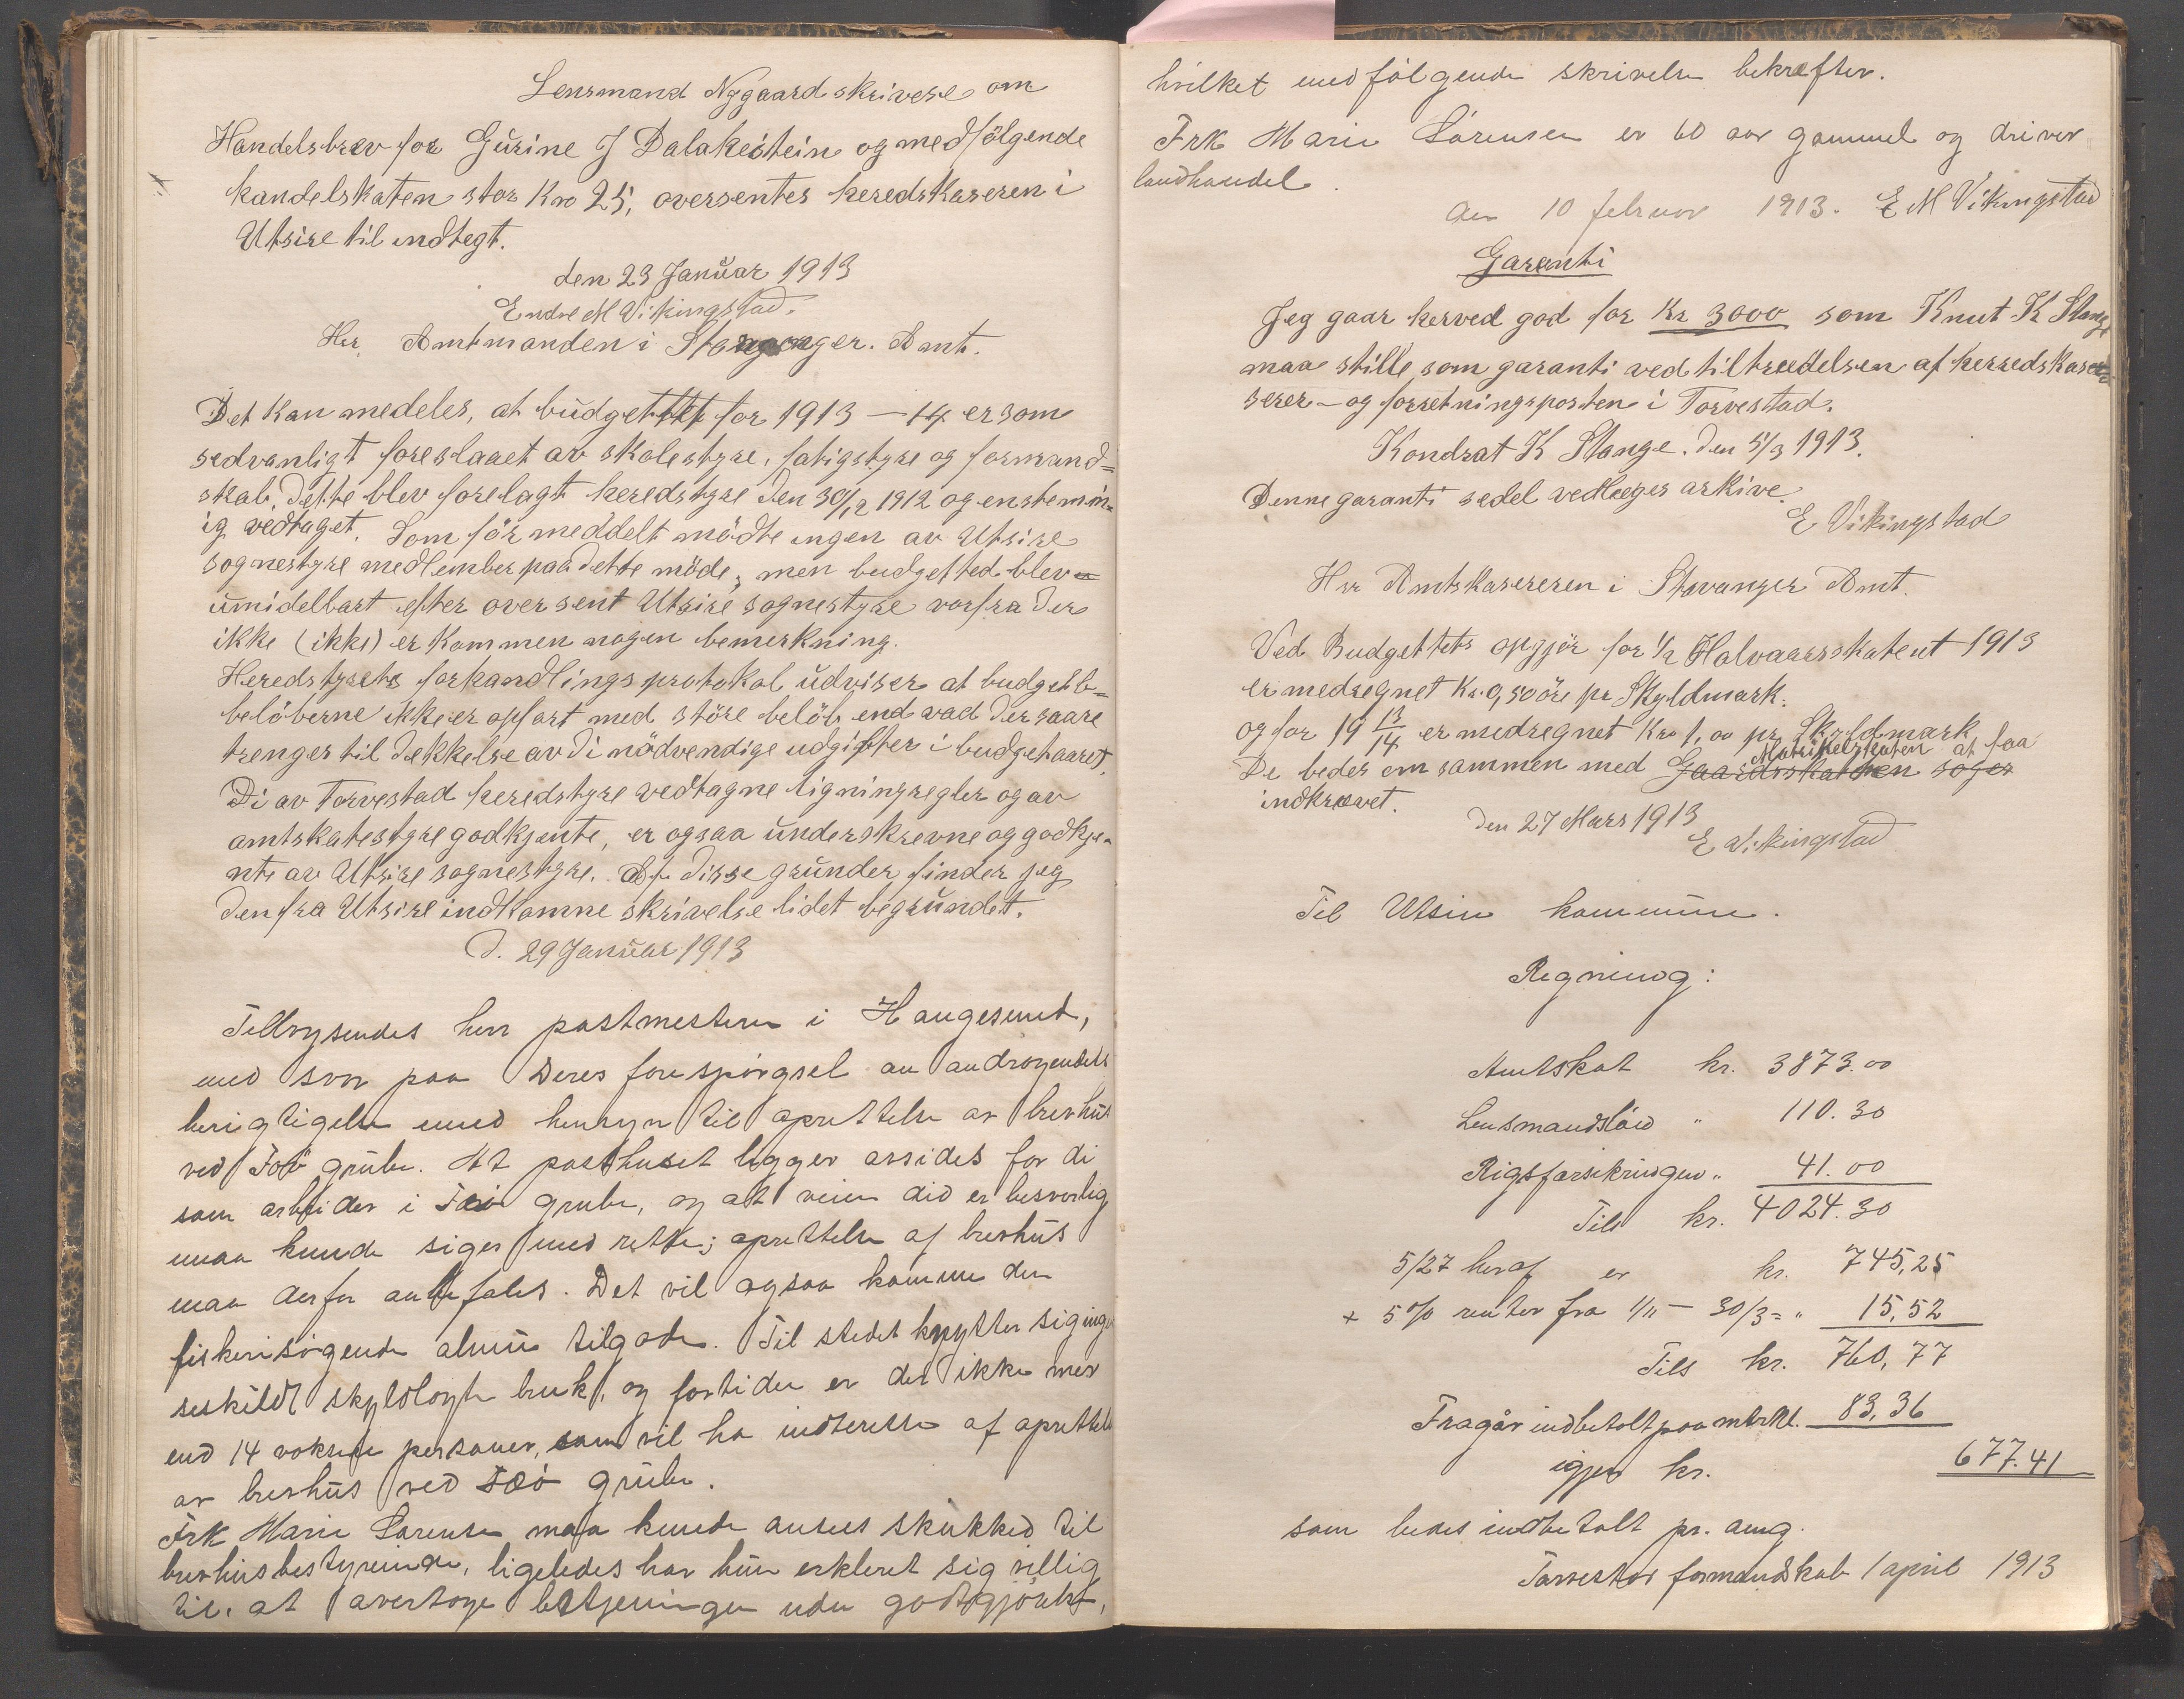 Lensmand Nygaard skrivese om
Handelsbrev for Gurine J Dalakeistein og medfölgende
handelskaten stor Kro 25, oversentes heredskaseren i
Utsire til indtegt.
den 23 Januar 1913
Endre M Vikingstad.
Her Amtmanden i Stavanger. Amt.
Det kan medeles, at budgettet for 1913 — 14 er som
sedvanligt foreslaaet av skolestyre, fatigstyre og formand=
skab. Dette blev forelagt heredstyre den 30/12 1912 og enstemm=
ig vedtaget. Som för meddelt mödte ingen av Utsire
sognestyre medlember paa dette möde; men budgetted blev
umidelbart efter oversent Utsire sognestyre vorfra der
ikke (ikke) er kommen nogen bemerkning.
Heredstyrets forhandlingsprotokol udviser at budgetb=
belöberne ikke er opfört med störe belöb end vad der saare
trenges til dekkelse av di nödvendige udgifter i budgetaaret.
Di av Torvestad heredstyre vedtagne ligningregler og av
amtskatestyre godkjente, er ogsaa underskrevne og godkje=
nte av Utsire sognestyre. Af disse grunder finder jeg
den fra Utsire indkomne skrivelse lidet begrundet.
d. 29 Januar 1913
Tilbagsendes herr postmesteren i Haugesund,
med svar paa Deres forespörgsel an andragendets
berigtigelse med hensyn til oprettelse av brevhus
ved Foö grube. At posthuset ligger avsides for di
som arbeider i Feö grube, og at veien did er besverlig
maa kunde siges med rette; oprettelse af brevhus
maa derfor anbefales. Det vil ogsaa komme den
fiskerisögende almue tilgode. Til stedet knytter sig ingen
seskildt skyldlagte bruk, og fortiden er det ikke mer
end 14 voksne personer, som vil ha indteresse af oprettelse
av brevhus ved Feö grube.
Frk Marie Sorensen maa kunde ansees skikked til
brevhusbestyrerinde, ligeledes har hun erkleret sig villig
til at overtage betjeningen uden godtgjörelse,
hvilket medfölgende skrivelse bekrefter.
Frk Marie Sörensen er 60 aar gammel og driver
landhandel.
den 10 februar 1913. E M Vikingstad
Garanti
Jeg gaar herved god for Kr 3000 som Knut K Stange
maa stille som garanti ved tiltredelsen af herredskase
serer- og forretningsposten i Torvestad.
Kondrat K Stange. den 5/3 1913.
Denne garanti sedel vedleges arkive.
E Vikingstad
Herr Amtskasereren i Stavanger Amt.
Ved Budgettets opgjör for 1/2 Halvaarsskatent 1913
er medregnet Kr. 0,50 öre pr Skyldmark.
og for 19 13/14 er medregnet Kro 1,00 pr Skyldmark
De bedes om sammen med Gaardsskatten Matrikelskaten soger at faa
indkrævet.
den 27 Mars 1913
E Vikingstad
Til Utsire kommune.
Regning:
Amtskat kr. 3873.00
Lensmandslön " 110.30
Rigsforsikringen " 41.00
Tils kr. 4024.30
5/27 heraf er kr. 745,25
+ 5% renter fra 1/11 — 30/3 = " 15,52
Tils kr. 760,77
Fragår indbetalt paa mtrkl. 83,36
igjen kr. 677.41
som bedes indbetalt pr. omg.
Torvestad formandskab 1 april 1913